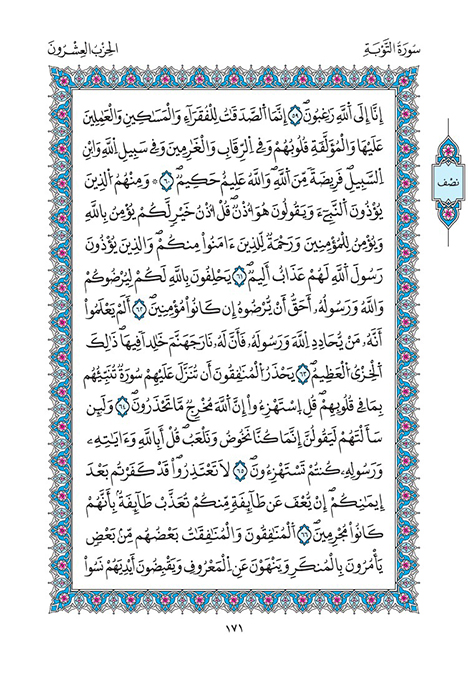 سُورَةُ التَّوْبَةِ
الحِزْبُ العِشْرُونَ
إِنَّا إِلَى اَللَّهِ رَٰغِبُونَۖ ٥٩ إِنَّمَا اَلصَّدَقَٰتُ لِلْفُقَرَآءِ وَالْمَسَٰكِينِ وَالْعَٰمِلِينَ
عَلَيْهَا وَالْمُؤَلَّفَةِ قُلُوبُهُمْ وَفِي اِلرِّقَابِ وَالْغَٰرِمِينَ وَفِي سَبِيلِ اِللَّهِ وَابْنِ
اِلسَّبِيلِۖ فَرِيضَةً مِّنَ اَللَّهِۖ وَاللَّهُ عَلِيمٌ حَكِيمٌۖ ٦٠ ۞ وَمِنْهُمُ اُلذِينَ
يُوذُونَ اَلنَّبِيٓءَ وَيَقُولُونَ هُوَ أُذْنٌۖ قُلُ اذْنُ خَيْرٍ لَّكُمْ يُومِنُ بِاللَّهِ
وَيُومِنُ لِلْمُومِنِينَ وَرَحْمَةٌ لِّلذِينَ ءَامَنُواْ مِنكُمْۖ وَالذِينَ يُوذُونَ
رَسُولَ اَللَّهِ لَهُمْ عَذَابٌ أَلِيمٌۖ ٦١ يَحْلِفُونَ بِاللَّهِ لَكُمْ لِيُرْضُوكُمْ
وَاللَّهُ وَرَسُولُهُۥٓ أَحَقُّ أَنْ يُّرْضُوهُ إِن كَانُواْ مُومِنِينَۖ ٦٢ أَلَمْ يَعْلَمُوٓاْ
أَنَّهُۥ مَنْ يُّحَادِدِ اِللَّهَ وَرَسُولَهُۥ فَأَنَّ لَهُۥ نَارَ جَهَنَّمَ خَٰلِداً فِيهَاۖ ذَٰلِكَ
اَلْخِزْيُ اُلْعَظِيمُۖ ٦٣ يَحْذَرُ اُلْمُنَٰفِقُونَ أَن تُنَزَّلَ عَلَيْهِمْ سُورَةٌ تُنَبِّئُهُم
بِمَا فِي قُلُوبِهِمْۖ قُلِ اِسْتَهْزِءُوٓاْ إِنَّ اَللَّهَ مُخْرِجٌ مَّا تَحْذَرُونَۖ ٦٤ وَلَئِن
سَأَلْتَهُمْ لَيَقُولُنَّ إِنَّمَا كُنَّا نَخُوضُ وَنَلْعَبُۖ قُلَ اَبِاللَّهِ وَءَايَٰتِهِۦ
وَرَسُولِهِۦ كُنتُمْ تَسْتَهْزِءُونَۖ ٦٥ لَا تَعْتَذِرُواْ قَدْ كَفَرْتُم بَعْدَ
إِيمَٰنِكُمْۖ إِنْ يُّعْفَ عَن طَآئِفَةٍ مِّنكُمْ تُعَذَّبْ طَآئِفَةٌۢ بِأَنَّهُمْ
كَانُواْ مُجْرِمِينَۖ ٦٦ اَلْمُنَٰفِقُونَ وَالْمُنَٰفِقَٰتُ بَعْضُهُم مِّنۢ بَعْضٍ
يَامُرُونَ بِالْمُنكَرِ وَيَنْهَوْنَ عَنِ اِلْمَعْرُوفِ وَيَقْبِضُونَ أَيْدِيَهُمْۖ نَسُواْ
نصف
١٧١